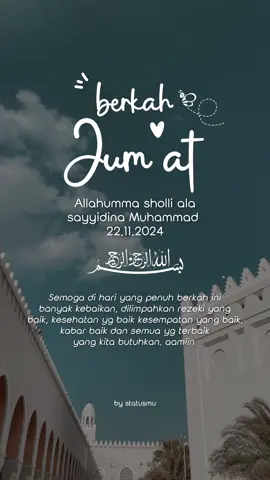 berkah
Jum'at
Allahumma sholli ala
sayyidina Muhammad
22.11.2024
بسم الله الرحمن الرحيم
Semoga di hari yang penuh berkah ini
banyak kebaikan, dilimpahkan rezeki yang
baik, kesehatan yg baik kesempatan yang baik,
kabar baik dan semua yg terbaik
yang kita butuhkan, aamiin
by statusmu